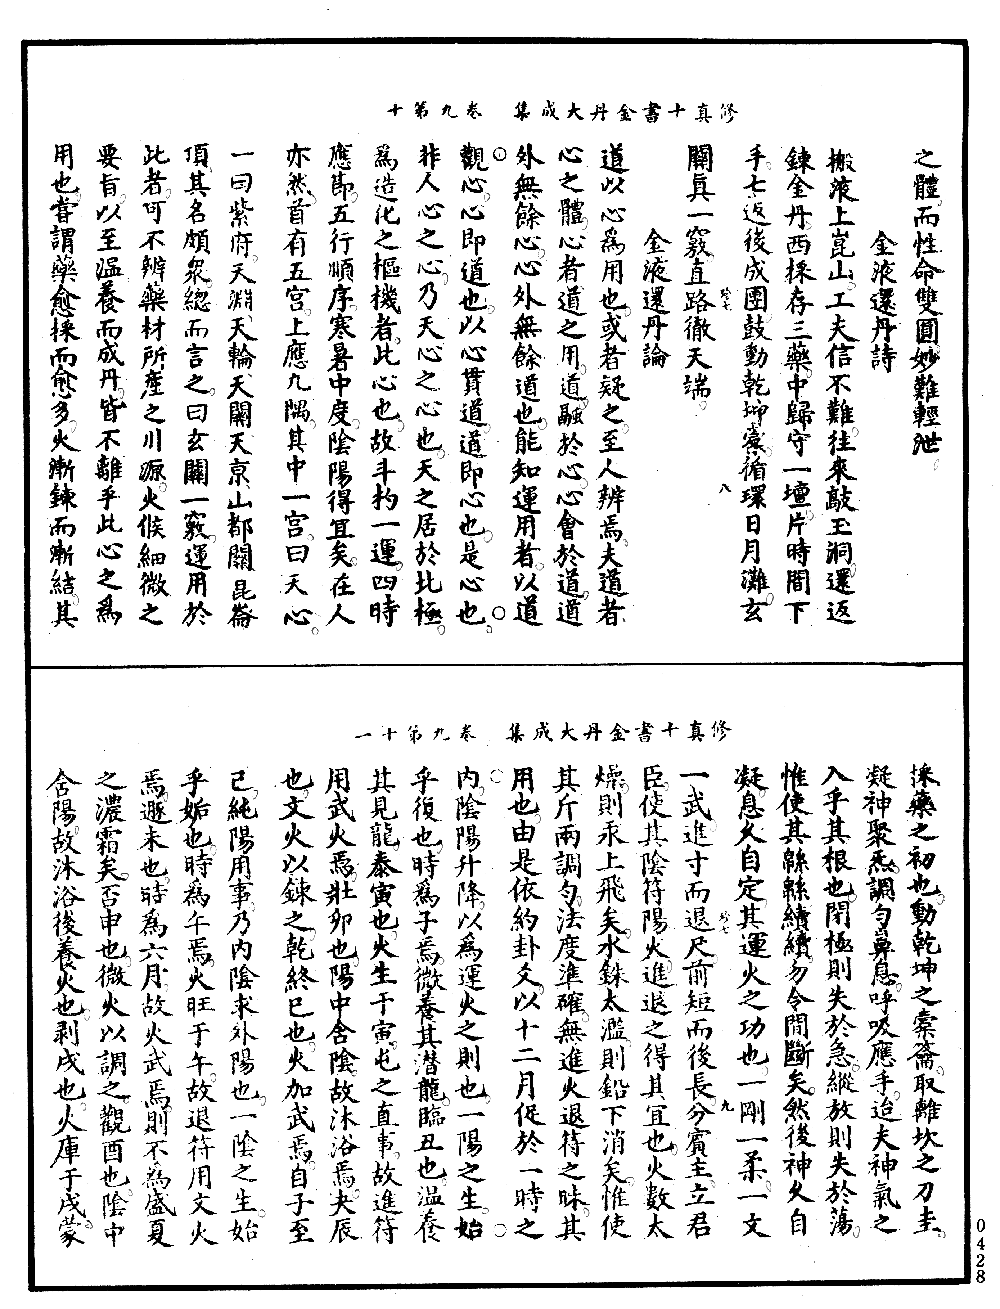 修真十書金丹大成集　卷九第十
之體而性命雙圓妙難輕泄
金液還丹詩
搬液上崑山工夫信不難往來敲玉洞還返
鍊金丹西採存三藥中歸守一壇片時間下
手七返後成團鼓動乾坤橐循環日月灘玄
八
關眞一竅直路徹天端
金液還丹論
道以心爲用也或者疑之至人辨焉夫道者
心之體心者道之用道融於心心會於道道
外無餘心心外無餘道也能知運用者以道
觀心心即道也以心貫道道即心也是心也
非人心之心乃天心之心也天之居於北極
爲造化之樞機者此心也故斗杓一運四時
應節五行順序寒暑中度陰陽得宜矣在人
亦然首有五宮上應九隅其中一宮曰天心
一曰紫府天淵天輪天關天京山都關崑崙
頂其名頗衆總而言之曰玄關一竅運用於
此者可不辨藥材所產之川源火候細微之
要旨以至温養而成丹皆不離乎此心之爲
用也嘗謂藥愈採而愈多火漸鍊而漸結其
修真十書金丹大成集　卷九第十一
採藥之初也動乾坤之橐籥取離坎之刀圭
凝神聚炁調勻鼻息呼吸應手迨夫神氣之
入乎其根也閉極則失於急縱放則失於蕩
惟使其緜緜續續勿令間斷矣然後神久自
凝息久自定其運火之功也一剛一柔一文
九
一武進寸而退尺前短而後長分賓主立君
臣使其陰符陽火進退之得其宜也火數太
燥則汞上飛矣水銖太濫則鉛下消矣惟使
其斤兩調勻法度準確無進火退符之昧其
用也由是依約卦爻以十二月促於一時之
內陰陽升降以爲運火之則也一陽之生始
乎復也時爲子焉微養其潛龍臨丑也溫養
其見龍泰寅也火生于寅屯之直事故進符
用武火焉壯卯也陽中含陰故沐浴焉夬辰
也文火以鍊之乾終巳也火加武焉自子至
巳純陽用事乃內陰求外陽也一陰之生始
乎姤也時爲午焉火旺于午故退符用文火
焉遯未也時爲六月故火武焉則不爲盛夏
之濃霜矣否申也微火以調之觀酉也陰中
含陽故沐浴後養火也剥戌也火庫于戌蒙
0428